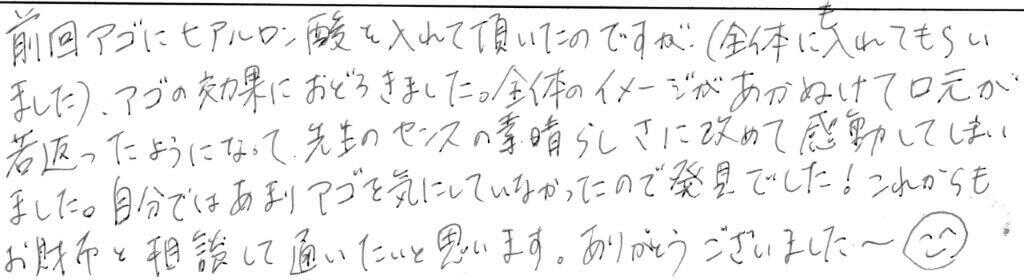 前回アゴにヒアルロン酸を入れて頂いたのですが、(全体にも入れてもらい
ました)、アゴの効果におどろきました。全体のイメージがあかぬけて口元が
若返ったようになって、先生のセンスの素晴らしさに改めて感動してしまい
ました。自分ではあまりアゴを気にしていなかったので発見でした！これからも
お財布と相談して通いたいと思います。ありがとうございました〜